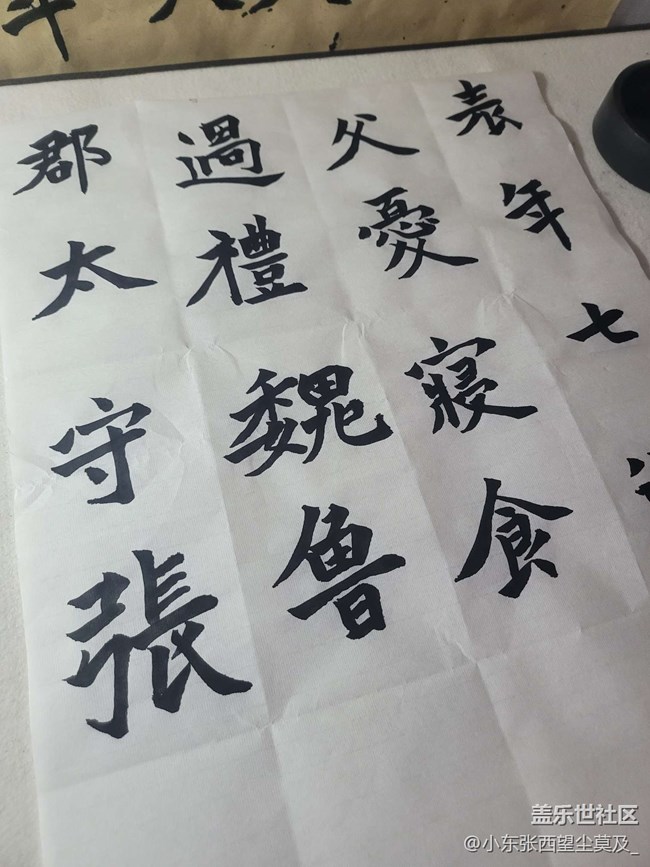 表年七
父憂寢食
過禮魏魯
郡太守張
盖乐世社区
@小东张西望尘莫及_